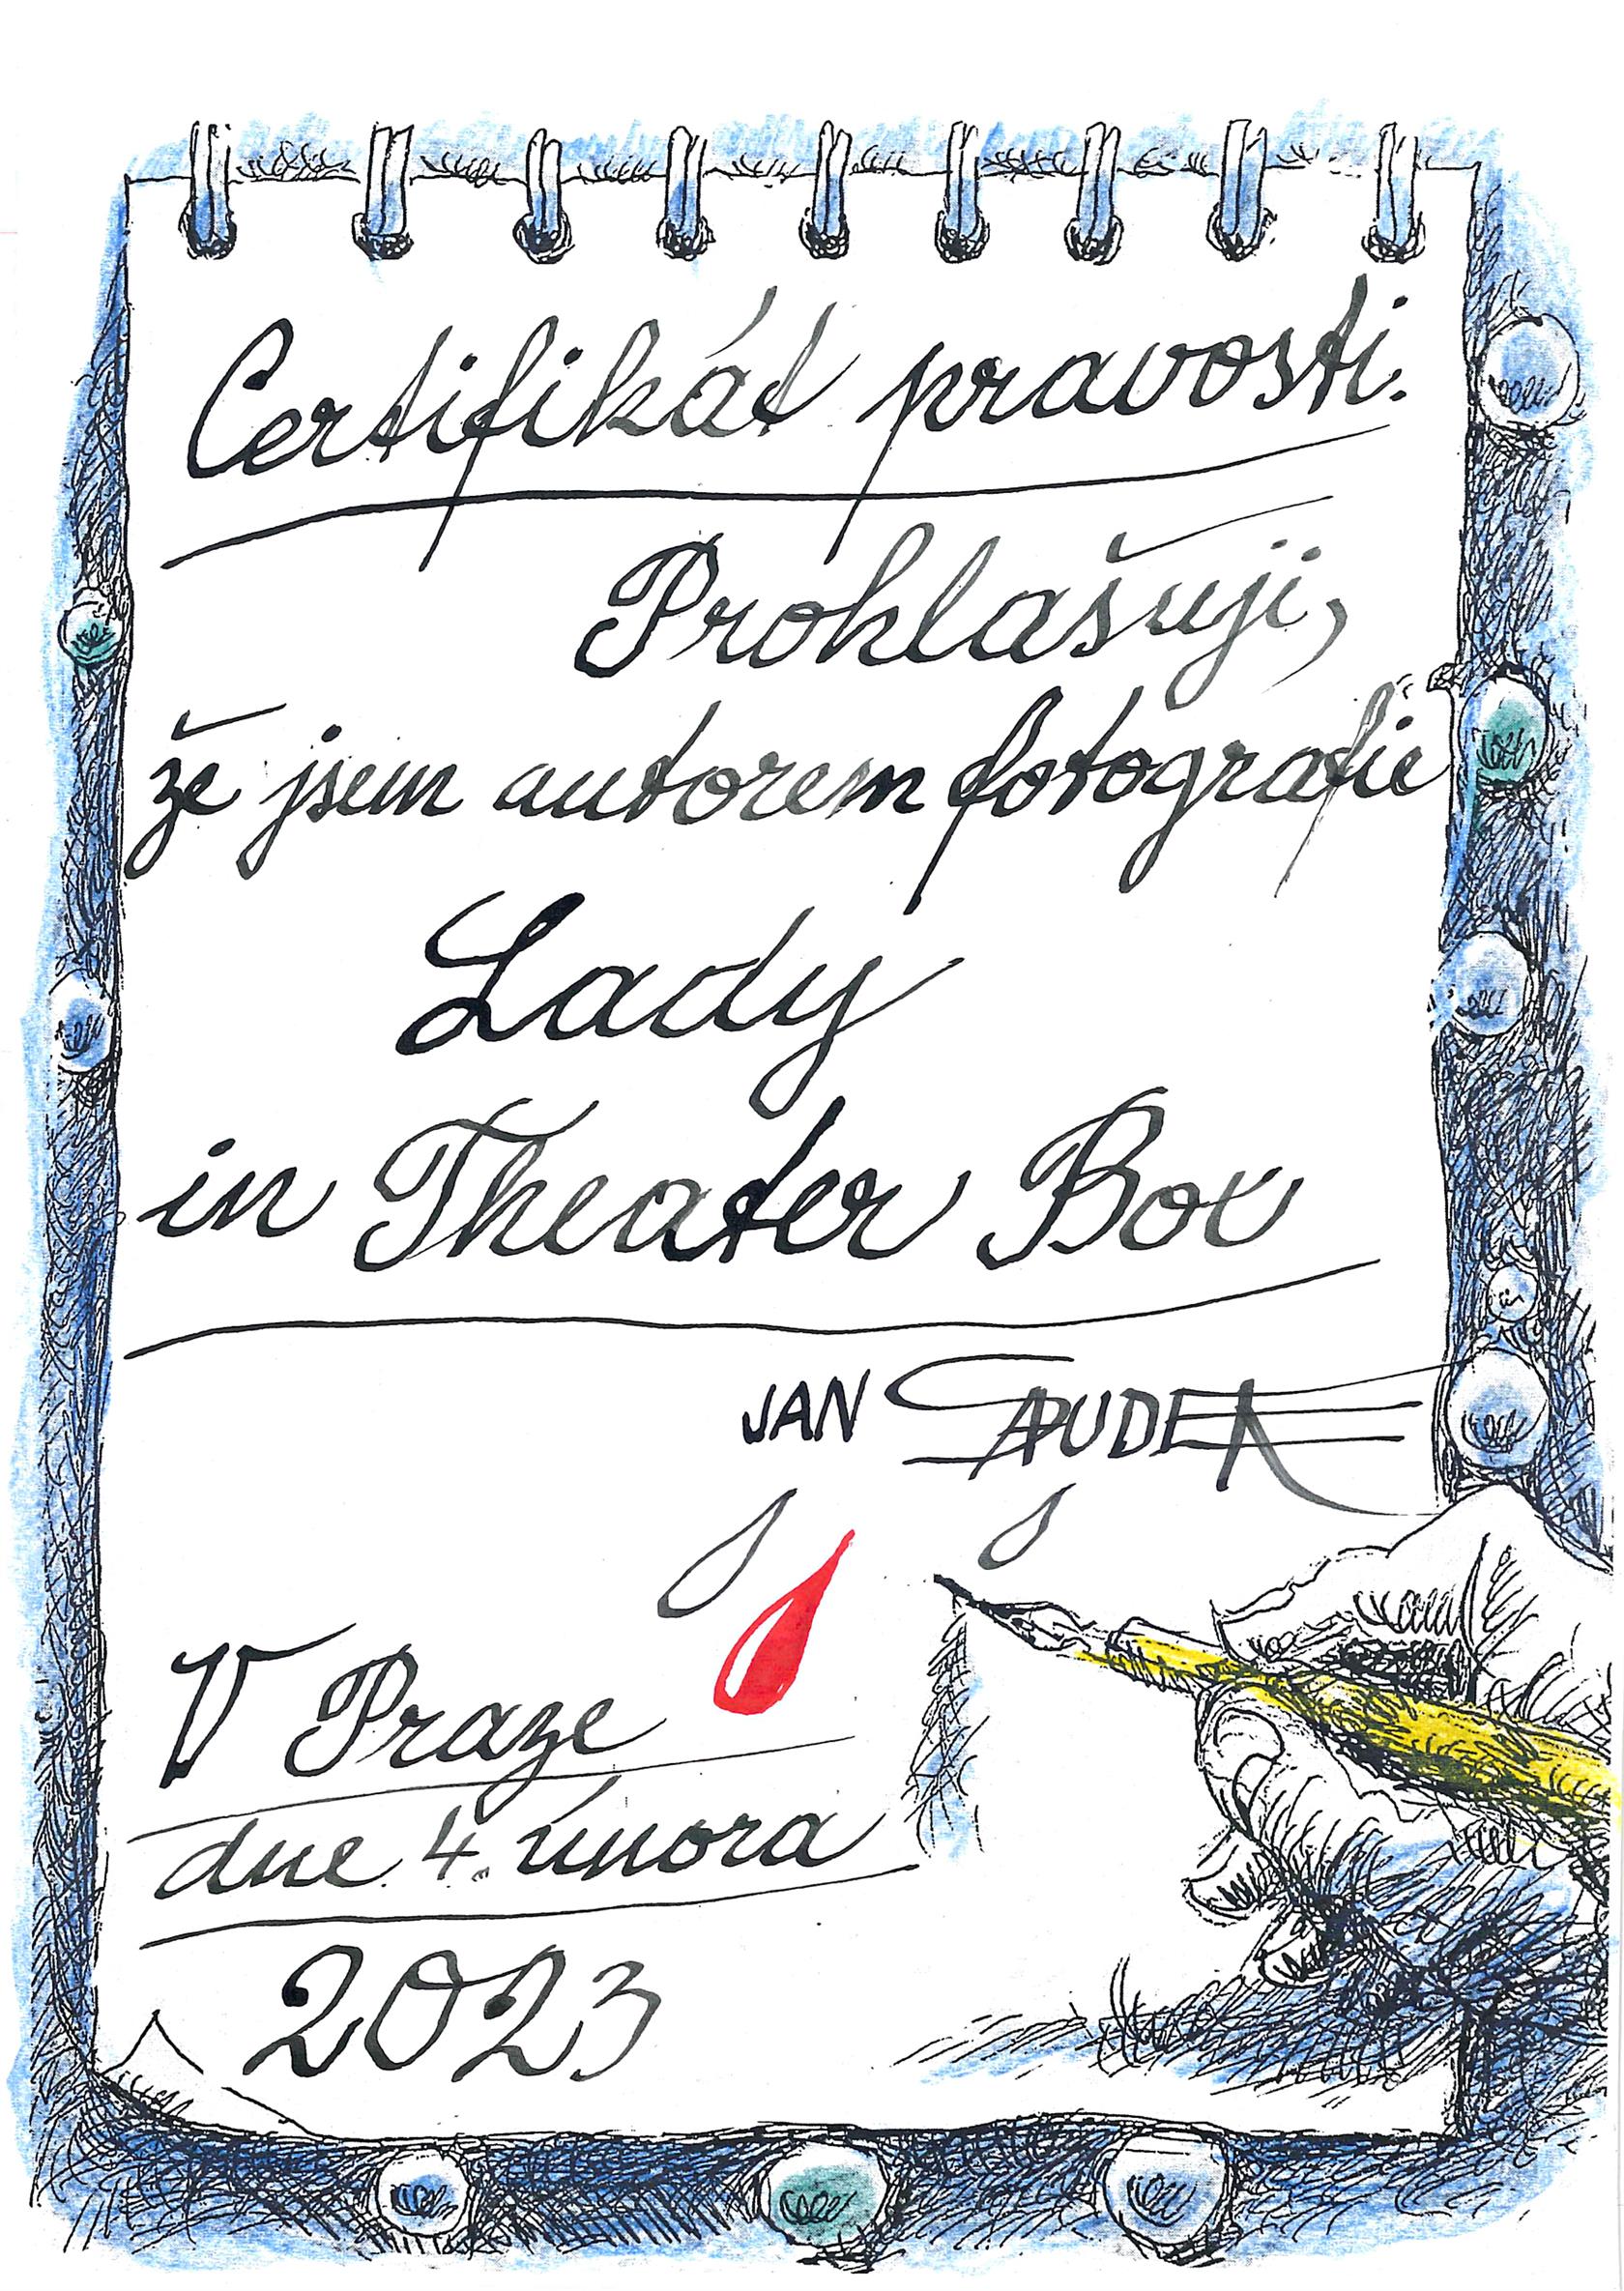 Certifikát pravosti.
Prohlašuji,
že jsem autorem fotografie
Lady
in Theater Box
JAN SAUDEK
V Praze
dne 4. února
2023